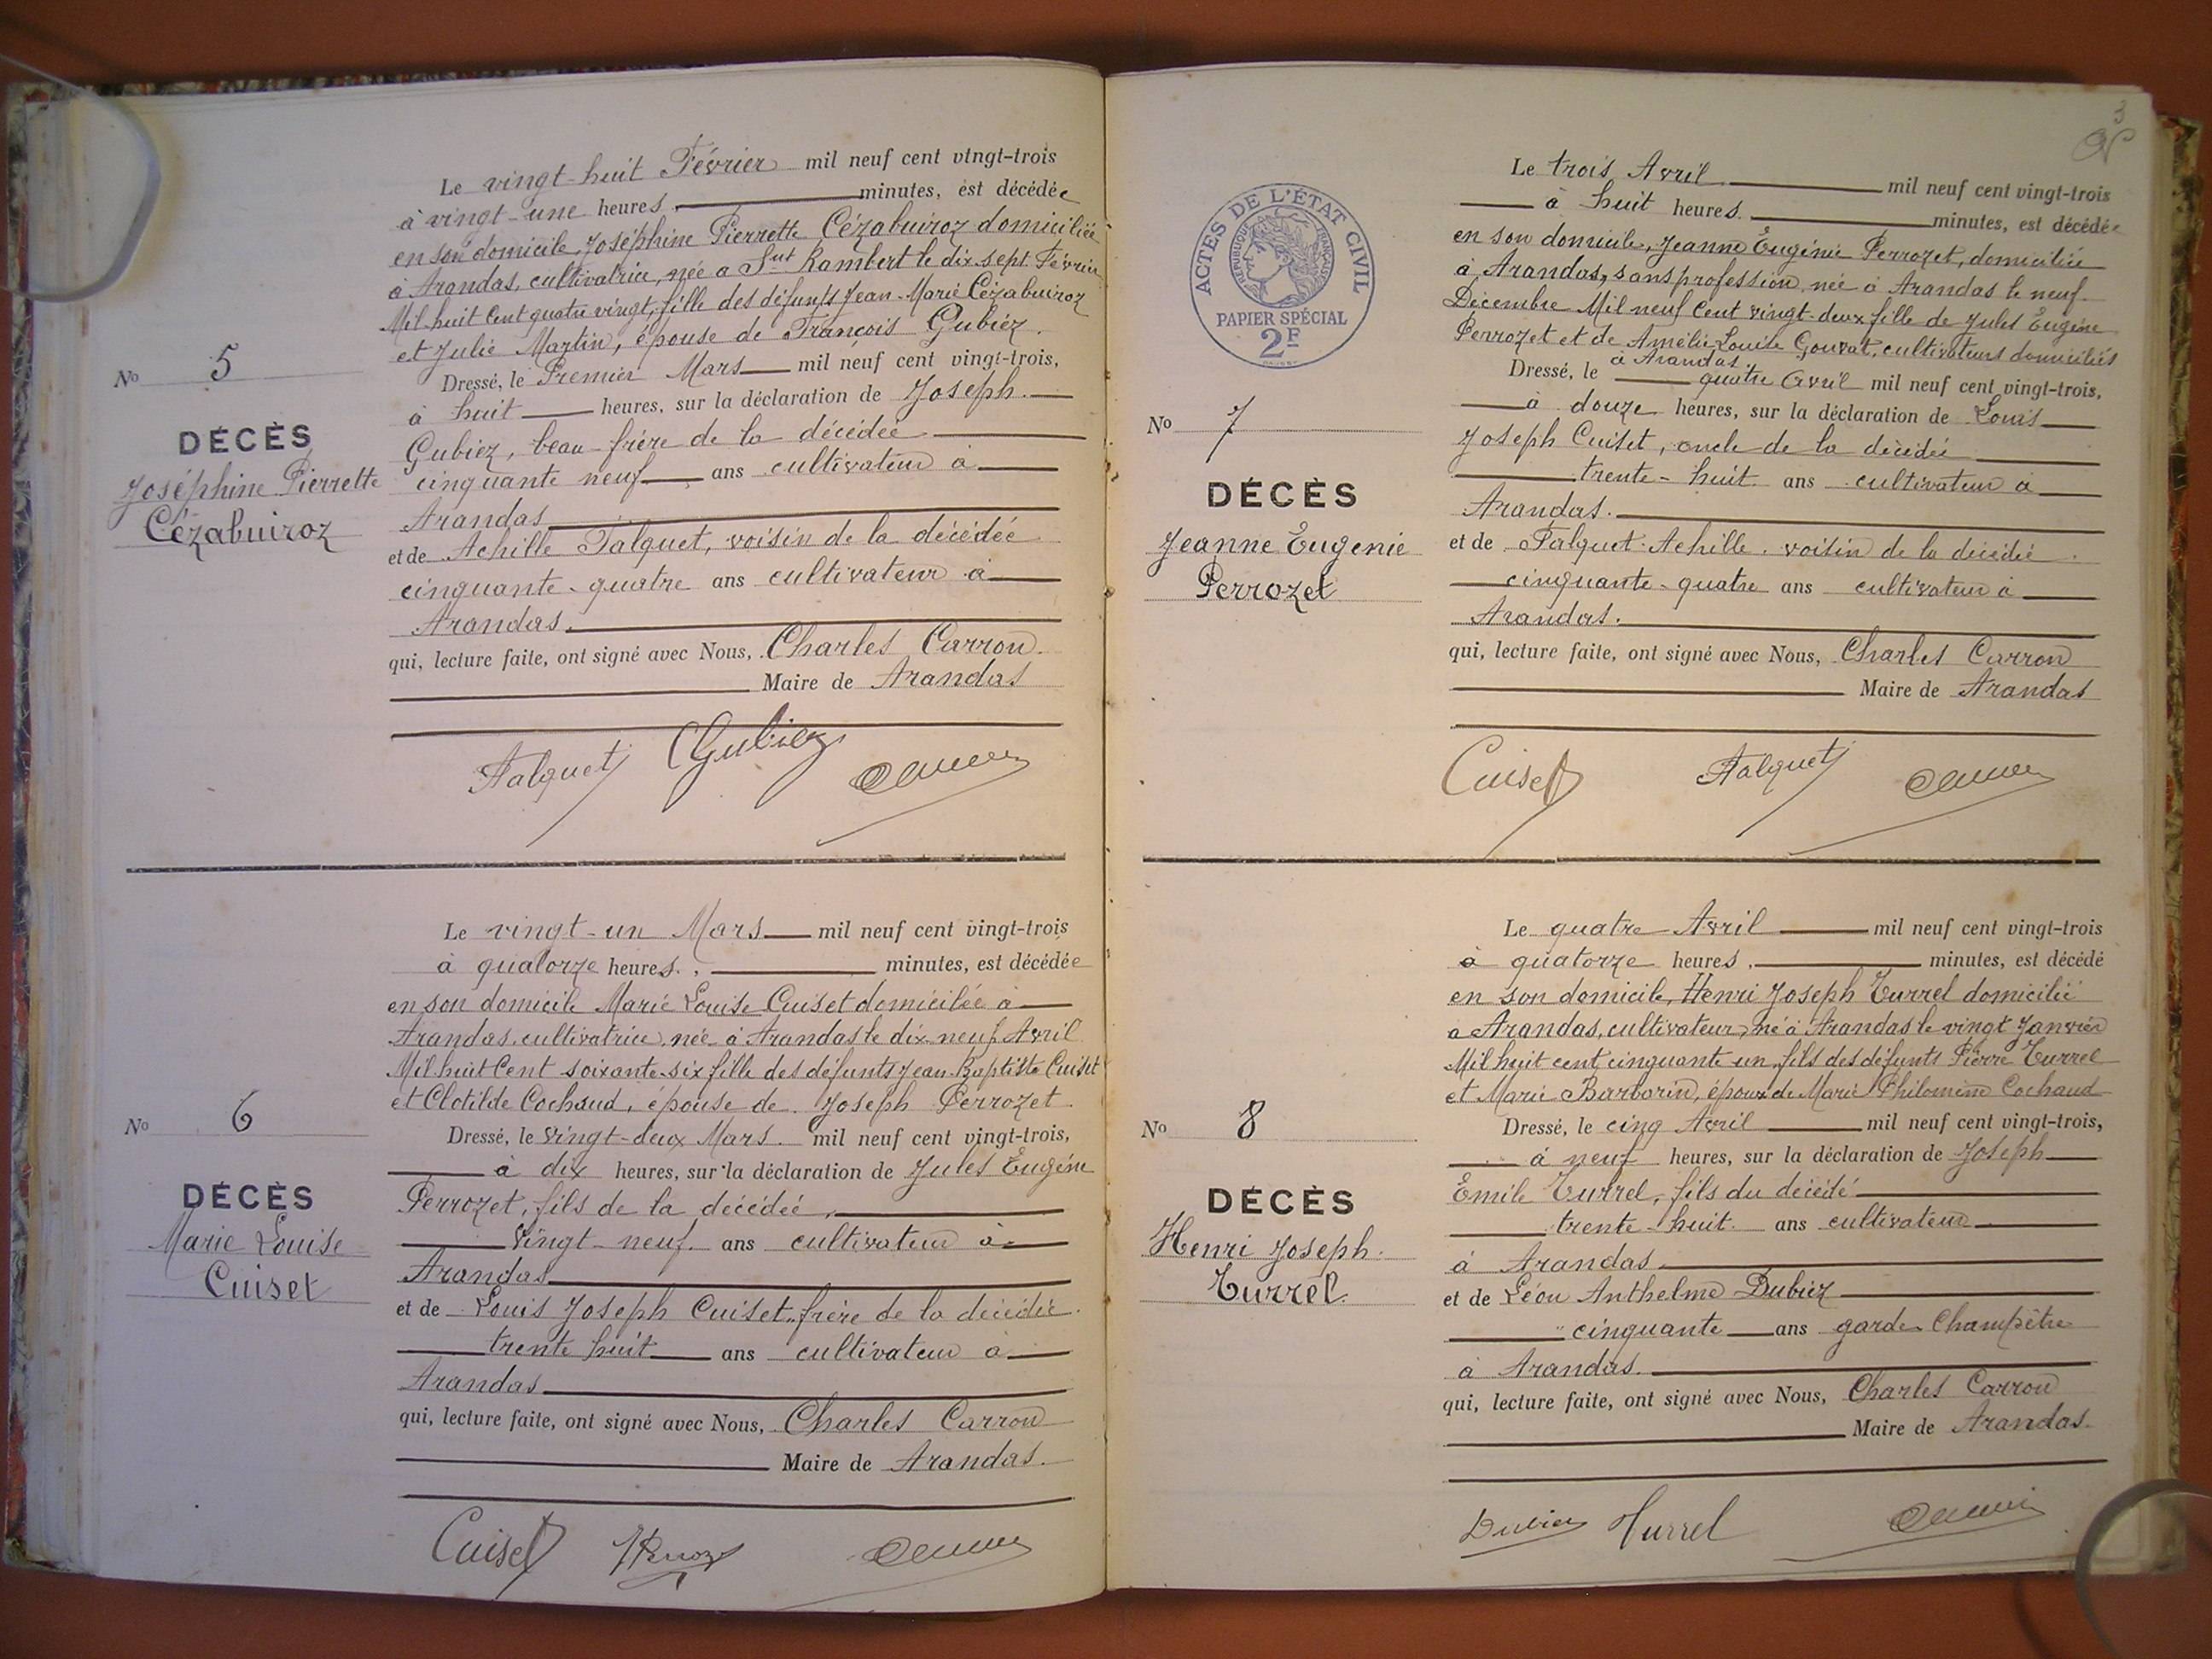 Le vingt-huit Février mil neuf cent vingt-trois
à vingt-une heures, minutes, est décédée
en son domicile, Joséphine Pierrette Cézabuiroz domiciliée
à Arandas, cultivatrice, née a Sut Rambert le dix-sept Février
Mil huit Cent quatre vingt, fille des défunts Jean-Marie Cézabuiroz
et Julie Martin, épouse de François Gubiez.
No 5
Dressé, le Premier Mars mil neuf cent vingt-trois,
à huit heures, sur la déclaration de Joseph.
DÉCÈS
Gubiez, beau-frère de la décédée
Joséphine Pierrette
cinquante neuf ans cultivateur à
Cézabuiroz
Arandas
et de Achille Falquet, voisin de la décédée
cinquante-quatre ans cultivateur à
Arandas.
qui, lecture faite, ont signé avec Nous, Charles Carron.
Maire de Arandas
Falquet Gubiez
Le vingt-un Mars mil neuf cent vingt-trois
à quatorze heures, minutes, est décédée
en son domicile Marie Louise Cuiset domiciliée à
Arandas, cultivatrice, née à Arandas le dix-neuf Avril
Mil huit Cent soixante-six fille des défunts Jean-Baptiste Cuiset
et Clotilde Cochaud, épouse de Joseph Perrozet
No 6
Dressé, le Vingt-deux Mars. mil neuf cent vingt-trois,
à dix heures, sur la déclaration de Jules Eugène
DÉCÈS
Perrozet, fils de la décédée,
Marie Louise
Vingt-neuf ans cultivateur à
Cuiset
Arandas
et de Louis Joseph Cuiset, frère de la décédée.
trente huit ans cultivateur à
Arandas
qui, lecture faite, ont signé avec Nous, Charles Carron
Maire de Arandas.
Cuiset
3
ACTES DE L'ÉTAT CIVIL
RÉPUBLIQUE FRANÇAISE
PAPIER SPÉCIAL
2F
Le trois Avril mil neuf cent vingt-trois
à huit heures. minutes, est décédée
en son domicile, Jeanne Eugénie Perrozet, domiciliée
à Arandas, sans profession, née à Arandas le neuf
Décembre Mil neuf Cent vingt-deux fille de Jules Eugène
Perrozet et de Amélie Louise Gouvat, cultivateurs domiciliés
à Arandas.
Dressé, le quatre Avril mil neuf cent vingt-trois,
No 7
à douze heures, sur la déclaration de Louis
Joseph Cuiset, oncle de la décédée
DÉCÈS
trente-huit ans cultivateur à
Jeanne Eugenie
Arandas.
Perrozet
et de Falquet Achille, voisin de la décédée.
cinquante-quatre ans cultivateur à
Arandas.
qui, lecture faite, ont signé avec Nous, Charles Carron
Maire de Arandas
Cuiset Falquet
Le quatre Avril mil neuf cent vingt-trois
à quatorze heures, minutes, est décédé
en son domicile, Henri Joseph Turrel domicilié
a Arandas, cultivateur, né à Arandas le vingt Janvier
Mil huit cent cinquante un, fils des défunts Pierre Turrel
et Marie Barbarin, époux de Marie Philomène Cochaud
No 8
Dressé, le cinq Avril mil neuf cent vingt-trois,
à neuf heures, sur la déclaration de Joseph
DÉCÈS
Emile Turrel, fils du décédé
Henri Joseph.
trente-huit ans cultivateur
Turrel.
à Arandas
et de Léon Anthelme Dubiez
cinquante ans garde Champêtre
à Arandas.
qui, lecture faite, ont signé avec Nous, Charles Carron
Maire de Arandas.
Dubiez Turrel